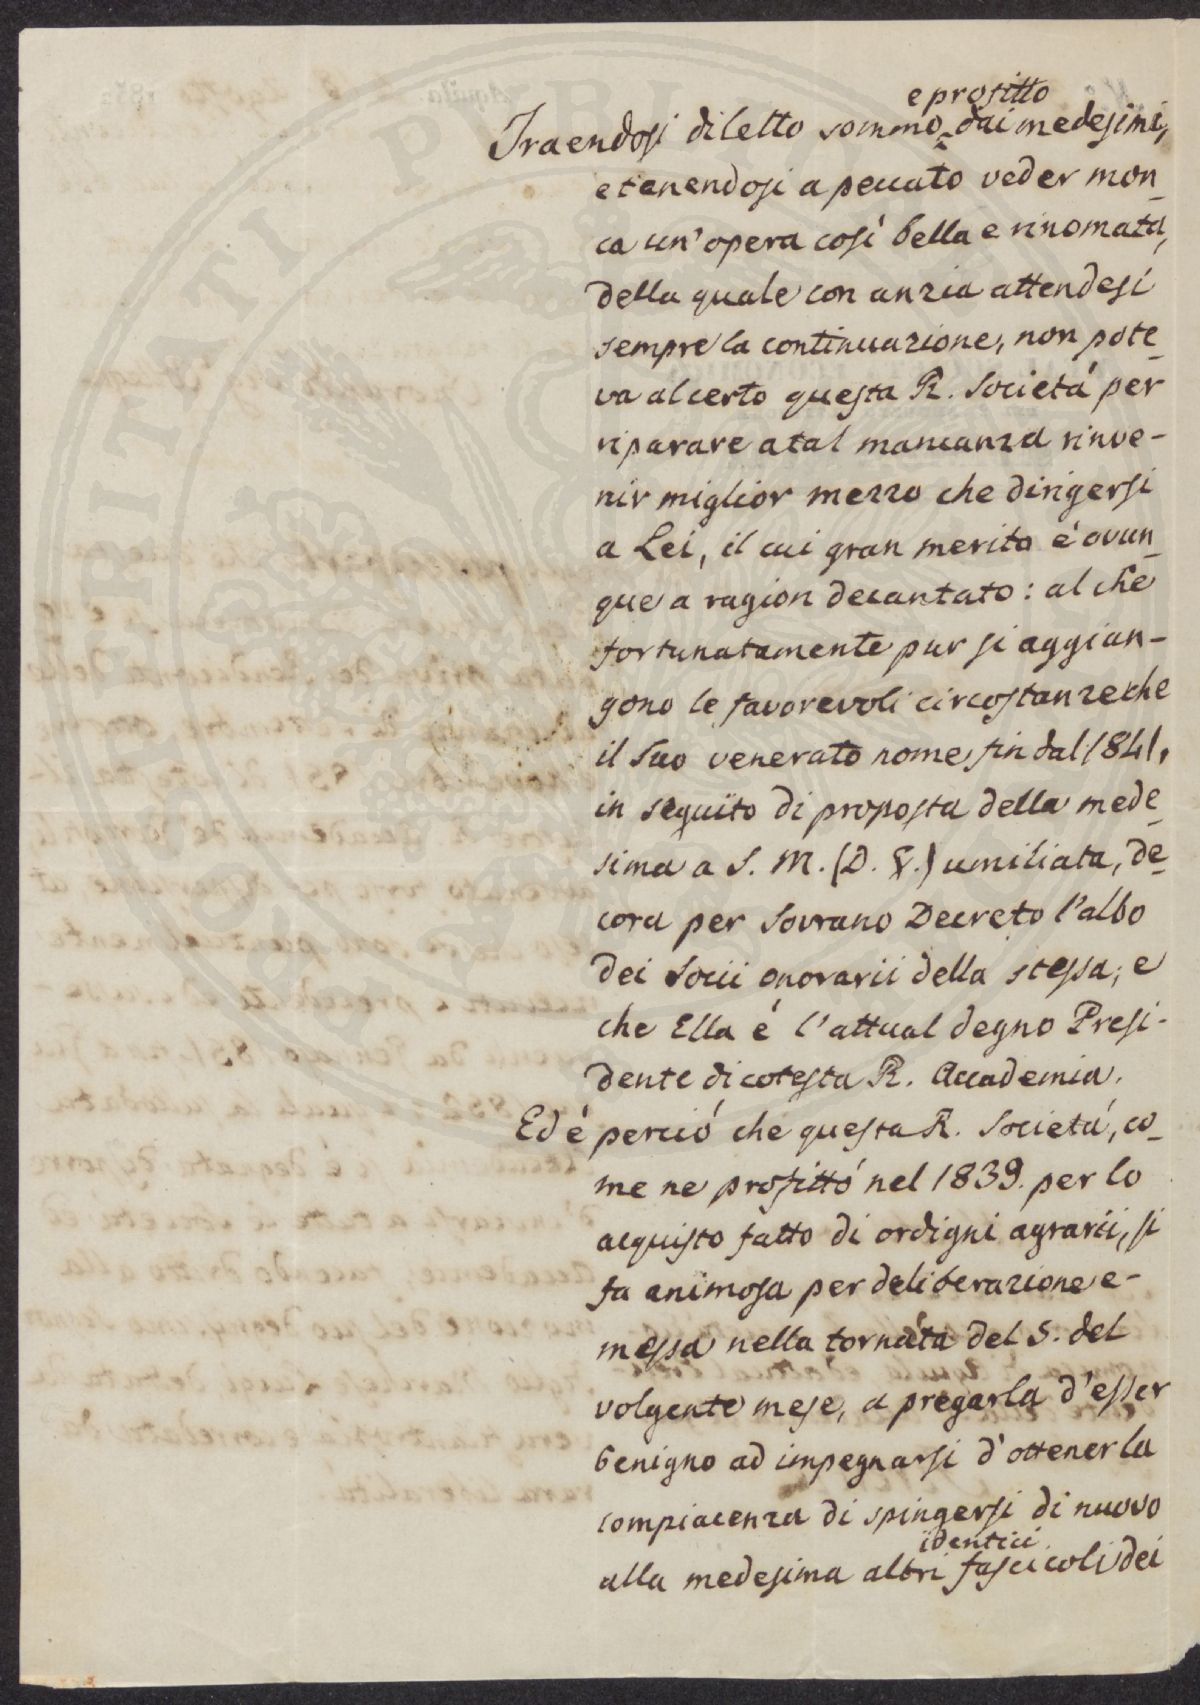 e profitto
Traendosi diletto sommo dai medesimi,
e tenendosi a peccato veder mon_
ca un'opera così bella e rinomata,
della quale con anzia attendesi
sempre la continuazione, non pote_
va al certo questa R. Società per
riparare a tal mancanza rinve-
nir miglior mezzo che dirigersi
a Lei, il cui gran merito è ovun_
que a ragion decantato: al che
fortunatamente pur si aggiun-
gono le favorevoli circostanze che
il Suo venerato nome fin dal 1841,
in seguito di proposta della mede_
sima a S. M. (D. G.) umiliata, de_
cora per Sovrano Decreto l'albo
dei Socii onorarii della stessa; e
che Ella è l'attual degno Presi-
dente di cotesta R. Accademia.
Ed è perciò che questa R. Società, co_
me ne profittò nel 1839. per lo
acquisto fatto di ordigni agrarii, si
fa animosa per deliberazione e-
messa nella tornata del 5. del
volgente mese, a pregarla d'esser
benigno ad impegnarsi d'ottener la
compiacenza di spingersi di nuovo
identici
alla medesima altri fascicoli dei